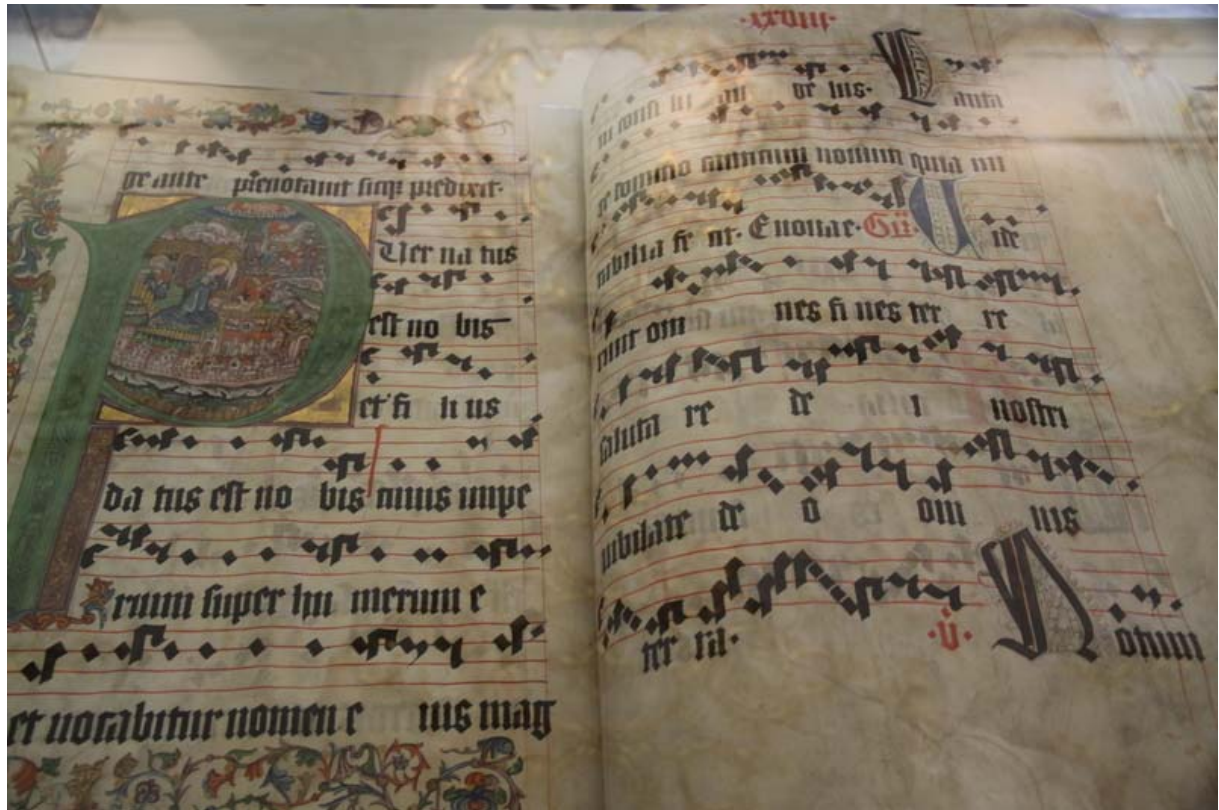 ge ante prenotamt sicqz predixit·
P Uer na tus
est no bis
et fi li us
da tus est no bis cuius impe
rium super hu merum e
et vocabitur nomen e ius mag
·xxviii·
ni consi lii an de lus· C anta
te domino canticum novum quia mi
rabilia fe cit· Euouae· Gr̄· V ide
runt om nes fi nes ter re
saluta re de i nostri
iubilate de o om nis
ter ra· ·v̄· N otum